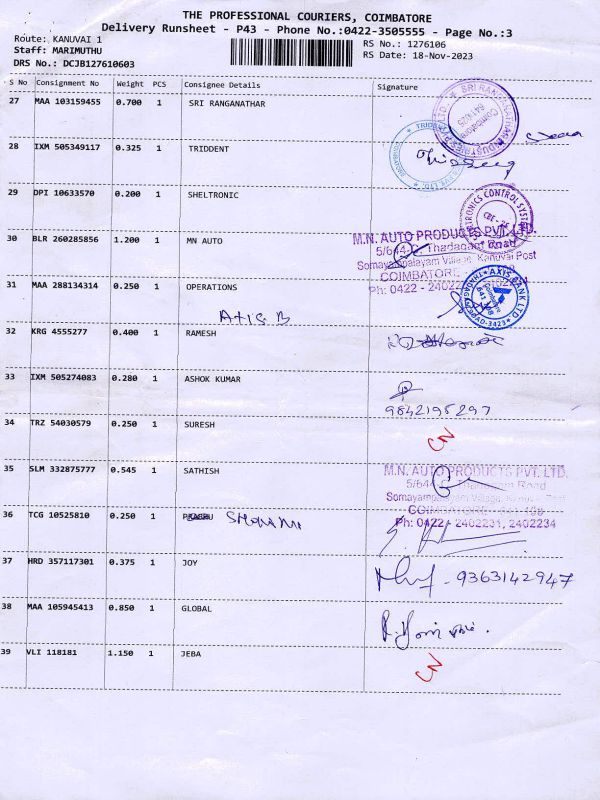 THE PROFESSIONAL COURIERS, COIMBATORE
Delivery Runsheet - P43 - Phone No.:0422-3505555 - Page No.:3
Route: KANUVAI 1
Staff: MARIMUTHU
DRS No.: DCJB127610603
RS No.: 1276106
RS Date: 18-Nov-2023
S No Consignment No Weight PCS Consignee Details Signature
27 MAA 103159455 0.700 1 SRI RANGANATHAR
28 IXM 505349117 0.325 1 TRIDDENT
29 DPI 10633570 0.200 1 SHELTRONIC
30 BLR 260285856 1.200 1 MN AUTO
M.N. AUTO PRODUCTS PVT. LTD.
5/644-C, Thadagam Road
Somayampalayam Village, Kanuvai Post
COIMBATORE
Ph: 0422 - 2402231
31 MAA 288134314 0.250 1 OPERATIONS
AXIS BANK LTD
AXIS B
32 KRG 4555277 0.400 1 RAMESH
33 IXM 505274083 0.280 1 ASHOK KUMAR
9842195297
34 TRZ 54030579 0.250 1 SURESH
CN
35 SLM 332875777 0.545 1 SATHISH
M.N. AUTO PRODUCTS PVT. LTD.
5/644-C, Thadagam Road
Somayampalayam Village, Kanuvai Post
COIMBATORE - 641 108
Ph: 0422 - 2402231, 2402234
36 TCG 10525810 0.250 1
37 HRD 357117301 0.375 1 JOY
9363142947
38 MAA 105945413 0.850 1 GLOBAL
39 VLI 118181 1.150 1 JEBA
CN